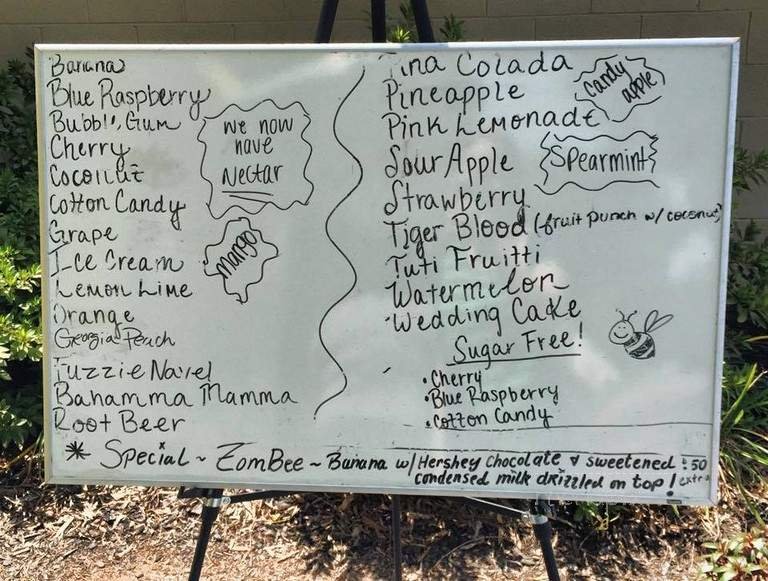 Banana
Blue Raspberry
Bubble Gum
Cherry
Coconut
Cotton Candy
Grape
Ice Cream
Lemon Lime
Orange
Georgia Peach
Fuzzie Navel
Bahamma Mamma
Root Beer
We now
have
Nectar
Mango
Pina Colada
Pineapple
Pink Lemonade
Sour Apple
Strawberry
Tiger Blood (fruit punch w/ coconut)
Tuti Fruitti
Watermelon
Wedding Cake
Candy
apple
Spearmint
Sugar Free!
• Cherry
• Blue Raspberry
• Cotton Candy
* Special ~ ZomBee ~ Banana w/ Hershey Chocolate & sweetened .50
condensed milk drizzled on top! extra